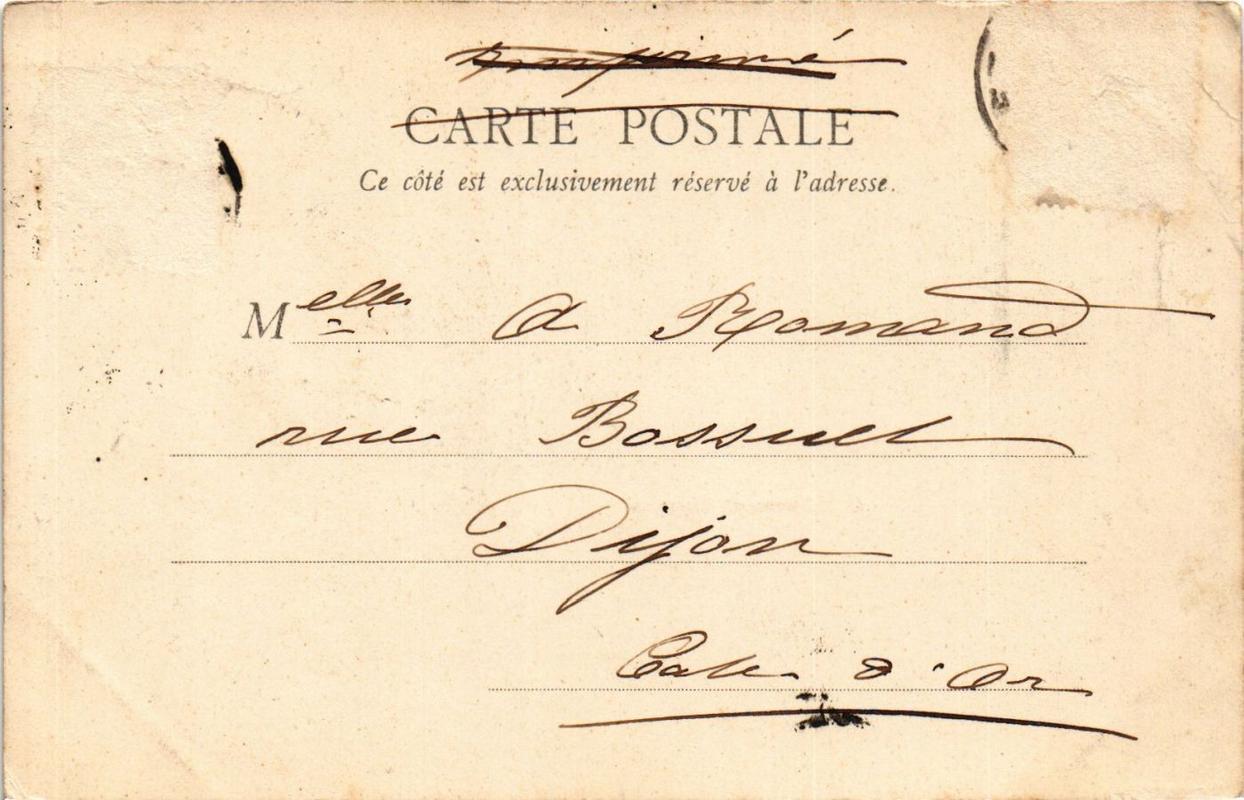 Imprimé
CARTE POSTALE
Ce côté est exclusivement réservé à l'adresse.
Melle A Romand
rue Bossuet
Dijon
Cote d'Or